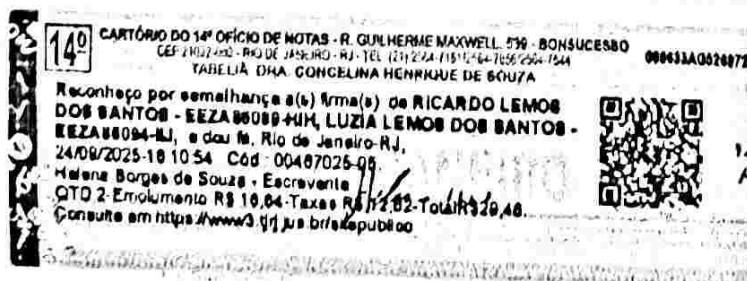 14º
CARTÓRIO DO 14º OFÍCIO DE NOTAS - R. GUILHERME MAXWELL, 539 - BONSUCESSO
RIO DE JANEIRO - RJ - TEL (21)
TABELIÃ DRA. GONCELINA HENRIQUE DE SOUZA
Reconheço por semelhança a(s) firma(s) de RICARDO LEMOS
DOS SANTOS - EEZA LUZIA LEMOS DOS SANTOS -
e dou fé, Rio de Janeiro-RJ,
24/09/2025-16:10:54 Cód: 00467025-05
Helena Borges de Souza - Escrevente
QTD 2-Emolumento R$ Taxas R$ Total R$
Consulte em https://www3.tjrj.jus.br/sitepublico